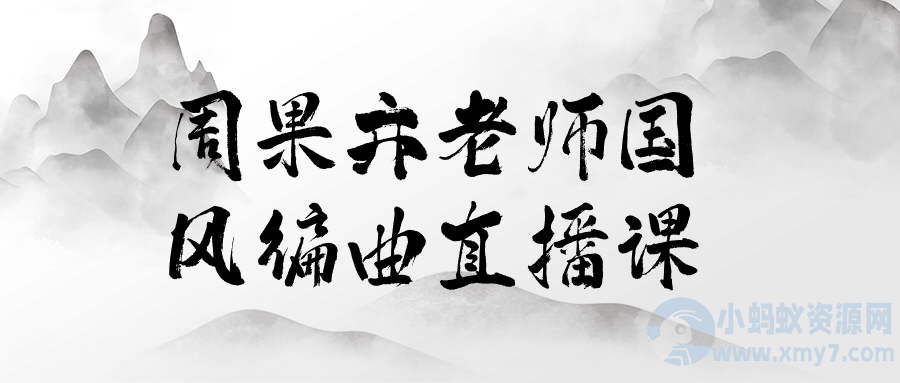 周果卞老师国
风编曲直播课
小蚂蚁资源网
www.xmy7.com